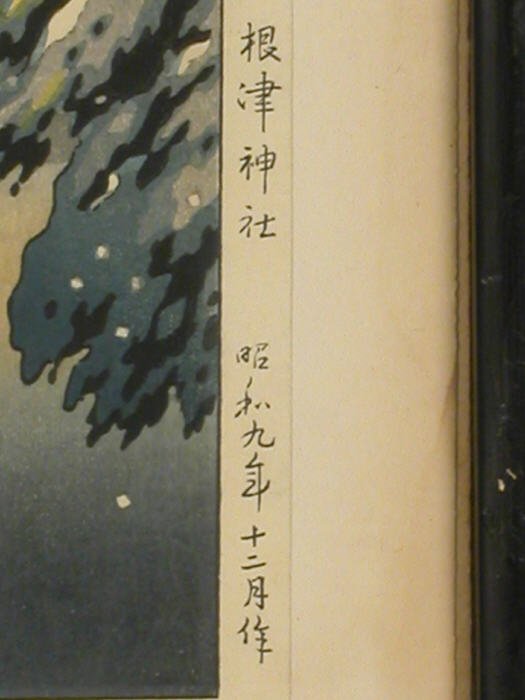 根津神社 昭和九年十二月作